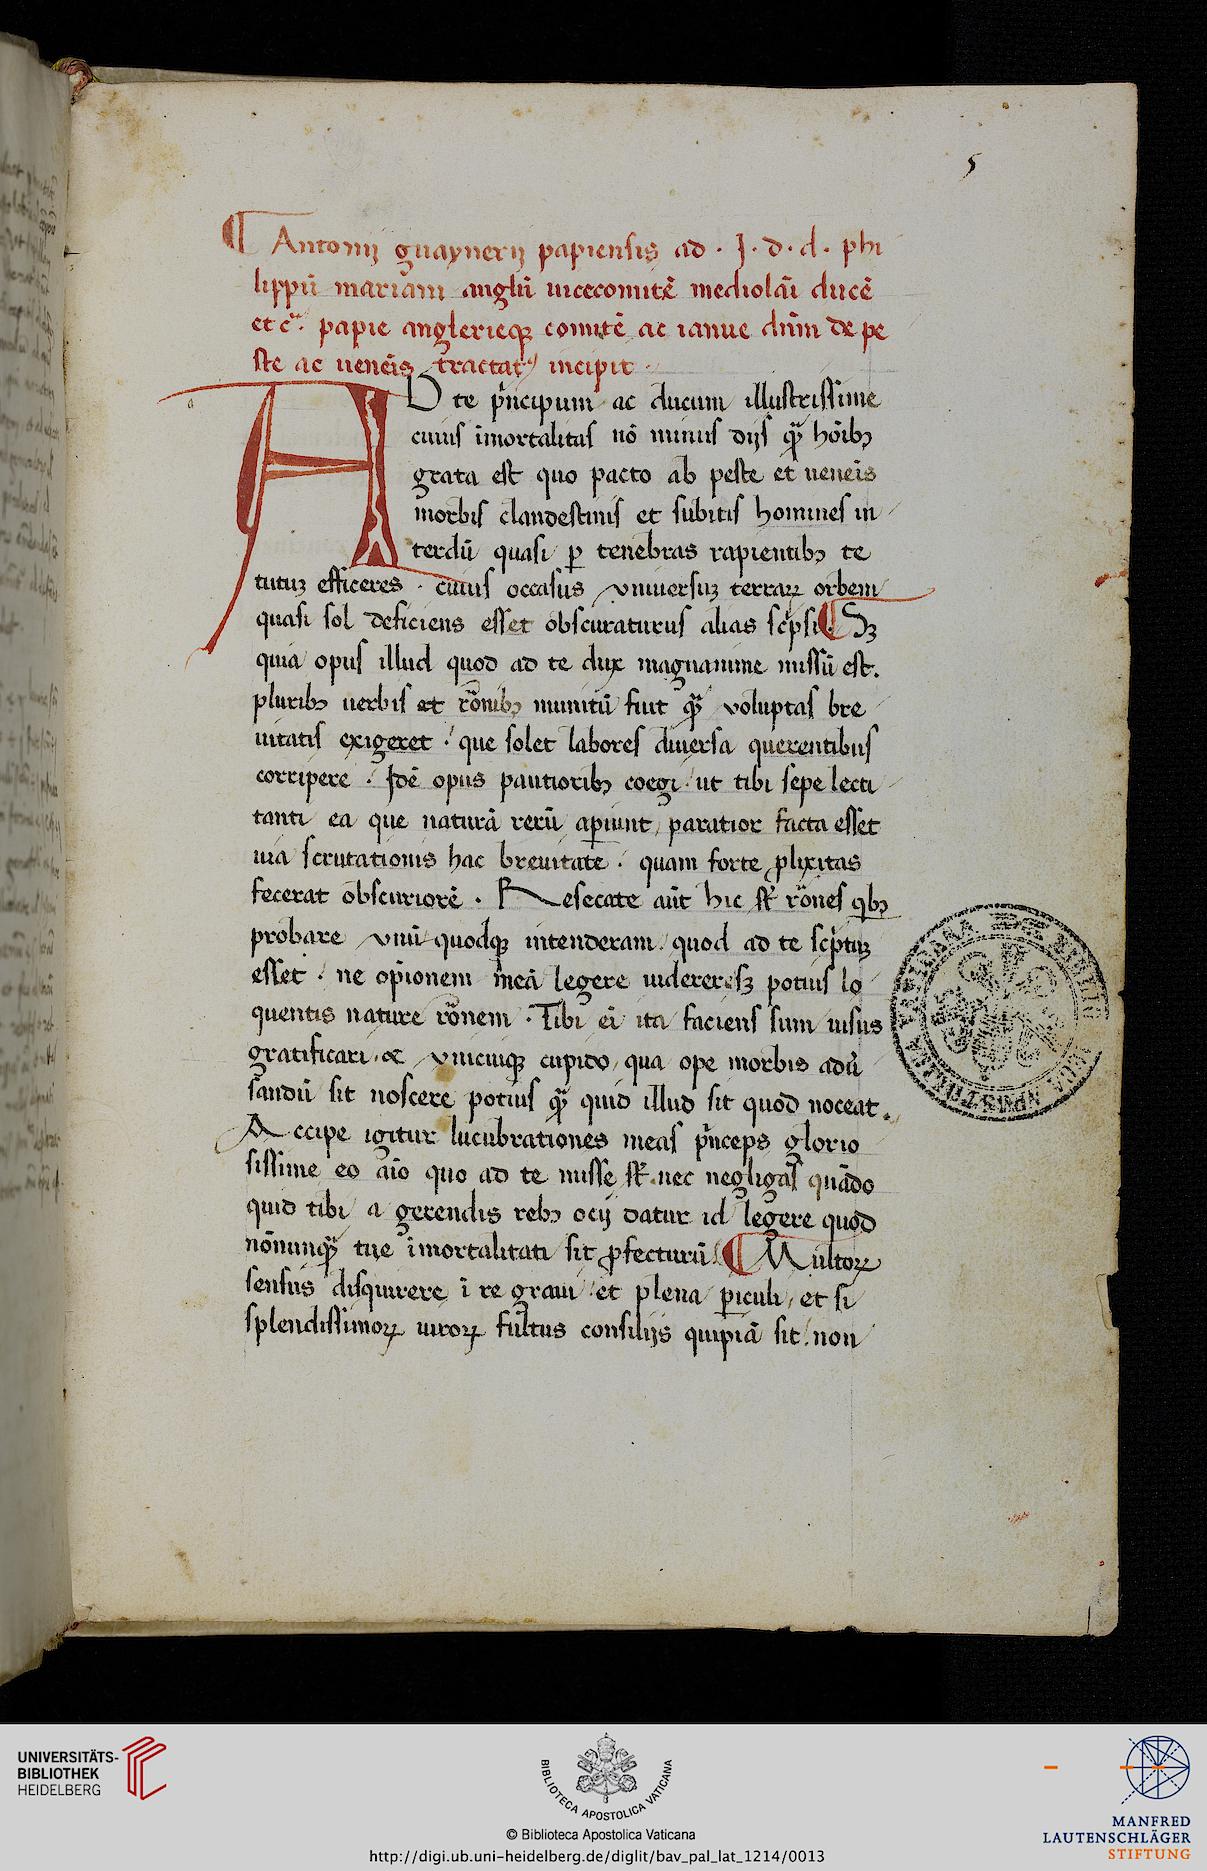 5
¶ Antonij guaynerij papiensis ad · J · d · d · phi
lippū mariam anglū uicecomitē mediolāi ducē
et cͣ. papie anglerieqꝫ comitē ac ianue dn̄m de pe
ste ac ueneīs tractatꝰ incipit ·
AD te pͥncipum ac ducum illustrissime
cuius īmortalitas nō minus dijs qͣꝫ hōibꝫ
grata est quo pacto ab peste et ueneīs
morbis clandestinis et subitis homines in
terdū quasi ꝑ tenebras rapientibꝫ te
tutuꝫ efficeres · cuius occasus vniuersuꝫ terraꝝ orbem
quasi sol deficiens esset obscuraturus alias scͥpsi. ¶ Sꝫ
quia opus illud quod ad te dux magnanime missū est.
pluribꝫ uerbis et rōnibꝫ munitū fuit qͣꝫ voluptas bre
uitatis exigeret · que solet labores diuersa querentibus
corripere · Idē opus pautioribꝫ coegi ut tibi sepe lecti
tanti ea que naturā rerū aꝑiunt paratior facta esset
uia scrutationis hac breuitate · quam forte ꝓlixitas
fecerat obscuriorē · Resecate aūt hic sͭ rōnes qͥbꝫ
probare vnū quodqꝫ intenderam quod ad te scͥptuꝫ
esset · ne opīonem meā legere uidereris sꝫ potius lo
quentis nature rōnem · Tibi eī ita faciens sum uisus
gratificari · & vnicuiqꝫ cupido qua ope morbis adū
sandū sit noscere potius qͣꝫ quid illud sit quod noceat.
Accipe igitur lucubrationes meas pͥnceps glorio
sissime eo aīo quo ad te misse sͭ nec negligas quādo
quid tibi a gerendis rebꝫ ocij datur id legere quod
nōnunqͣꝫ tue īmortalitati sit ꝓfecturū. ¶ Multoꝝ
sensus disquirere ī re graui et plena ꝑiculi, et si
splendissimoꝝ uiroꝝ fultus consilijs quipiā sit non
UNIVERSITÄTS-
BIBLIOTHEK
HEIDELBERG
BIBLIOTECA APOSTOLICA VATICANA
© Biblioteca Apostolica Vaticana
http://digi.ub.uni-heidelberg.de/diglit/bav_pal_lat_1214/0013
MANFRED
LAUTENSCHLÄGER
STIFTUNG